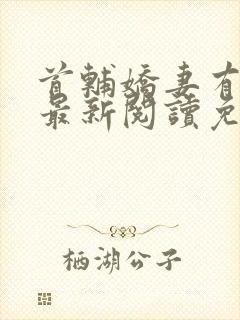 首輔嬌妻有
最新閱讀免
栖湖公子